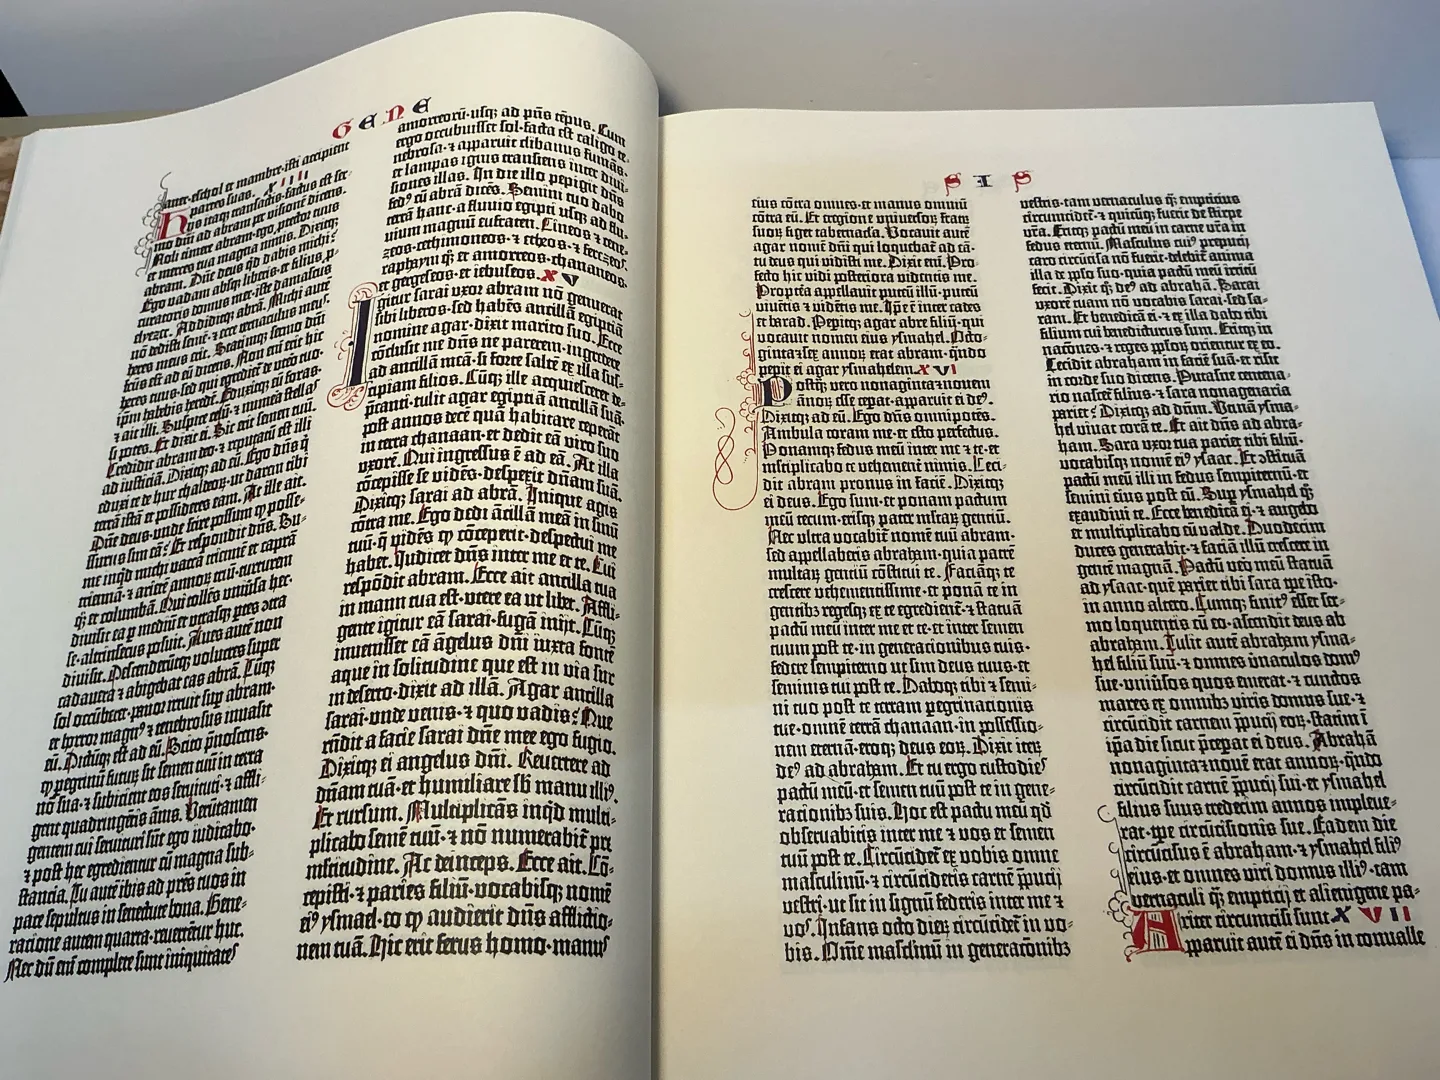 GENE
aner·eschol et mambre·isti accipient
partes suas. XIIII
Hys itaq; transactis·factus est ser-
mo dñi ad abram per visionē dicens.
Noli timere abram·ego protector tuus
et merces tua magna nimis. Dixitq;
abram. Dñe deus qd dabis michi?
Ego vadam absq; liberis·et filius p-
curatoris domus mee·iste damascus
elyezer. Addiditq; abrā. Michi autē
nō dedisti semē·⁊ ecce vernaculus meus·
heres meus erit. Statimq; sermo dñi
fcūs est ad eū dicens. Non erit hic
heres tuus·sed qui egredieť de vtero tuo·
ipm habebis heredē. Eduxitq; eū foras·
⁊ ait illi. Suspice celū·⁊ numera stellas
si potes. Et dixit ei. Sic erit semen tuū.
Credidit abram deo·⁊ reputatū est illi
ad iusticiā. Dixitq; ad eū. Ego dñs q̄
eduxi te de hur chaldeoꝝ·ut darem tibi
terrā istā·et possideres eam. At ille ait.
Dñe deus·unde scire possum ꝙ posse-
ssurus sim eā? Et respondit dñs. Su-
me inqd michi vaccā triennē et caprā
triennā·⁊ arietē annoꝝ triū·turturem
q̄ et columbā. Qui tollēs vniūsa hec·
diuisit ea p mediū·et vtrasq; ptes ɔtra
se·altrinsecus posuit. Aues autē non
diuisit. Descenderūtq; volucres super
cadauera·⁊ abigebat eas abrā. Cūq;
sol occūberet·pauor irruit sup abram·
et horror magnꝰ ⁊ tenebrosus inuasit
eū. Dictūq; est ad eū. Scito p̄noscens·
ꝙ peregrinū futurū sit semen tuū in terra
nō sua·⁊ subicient eos seruituti·⁊ affli-
gent quadringētis ānnis. Verūtamen
gentem cui seruituri sūt ego iudicabo·
⁊ post hec egredientur cū magna sub-
stancia. Tu autē ibis ad pr̄es tuos in
pace sepultus in senectute bona. Gene-
racione autem quarta·reuertētur huc.
Nec dū em̄ complete sunt iniquitates
amorreorū·usq; ad p̄ns tēpus. Cum
ergo occubuisset sol·facta est caligo te-
nebrosa·⁊ apparuit clibanus fumās·
et lampas ignis transiens inter diui-
siones illas. In die illo pepigit dñs
fedꝰ cū abrā dicēs. Semini tuo dabo
terrā hanc·a fluuio egipti usq; ad flu-
uium magnū eufraten. Cineos·⁊ cene-
zeos·cethimoneos·⁊ etheos·⁊ ferezeos·
raphaym q̄ et amorreos·chananeos·
et gergeseos·et iebuseos. XV
Igitur sarai vxor abram nō genuerat
sibi liberos·sed habēs ancillā egiptiā
nomine agar·dixit marito suo. Ecce
cōclusit me dñs ne parerem·ingredere
ad ancillā meā·si forte saltē ex illa sus-
cipiam filios. Cūq; ille acquiesceret de-
p̄canti·tulit agar egiptiā ancillā suā·
post annos decē quā habitare ceperāt
in terra chanaan·et dedit eā viro suo
vxorē. Qui ingressus ē ad eā. At illa
cōcepisse se vidēs·despexit dn̄am suā.
Dixitq; sarai ad abrā. Inique agis
cōtra me. Ego dedi ācillā meā in sinū
tuū·q̄ vidēs ꝙ cōceperit·despectui me
habet. Iudicet dñs inter me et te. Cui
respōdit abram. Ecce ait ancilla tua
in manu tua est·vtere ea ut libet. Affli-
gente igitur eā sarai·fugā iniit. Cūq;
inuenisset eā āgelus dñi iuxta fontē
aque in solitudine que est in via sur
in deserto·dixit ad illā. Agar ancilla
sarai·vnde venis·⁊ quo vadis? Que
rn̄dit a facie sarai dn̄e mee ego fugio.
Dixitq; ei angelus dñi. Reuertere ad
dn̄am tuā·et humiliare sb manu illiꝰ.
Et rursum. Multiplicās inqd multi-
plicabo semē tuū·⁊ nō numerabiť pre
mltitudine. Ac deinceps. Ecce ait. Cō-
cepisti·⁊ paries filiū·vocabisq; nomē
eiꝰ ysmael·eo ꝙ audierit dñs afflictio-
nem tuā. Hic erit ferus homo·manus
SIS
eius cōtra omnes·et manus omniū
cōtra eū. Et eregione vniuersoꝝ fratꝝ
suoꝝ figet tabernacła. Vocauit autē
agar nomē dñi qui loquebať ad eā·
tu deus qui vidisti me. Dixit em̄. Pro-
fecto hic vidi posteriora videntis me.
Propt̄ea appellauit puteū illū·puteū
viuētis ⁊ vidētis me. Ip̄e ē inter cades
et barad. Pepitq; agar abre filiū·qui
vocauit nomen eius ysmahel. Octo-
ginta⁊sex annoꝝ erat abram·q̄ndo
peperit ei agar ysmahelem. XVI
Postq̄ vero nonaginta⁊nouem
ānoꝝ esse cepat·apparuit ei deꝰ.
Dixitq; ad eū. Ego dñs omnipotēs.
Ambula coram me·et esto perfectus.
Ponamq; fedus meū inter me ⁊ te·et
mltiplicabo te vehement̄ nimis. Ceci-
dit abram pronus in faciē. Dixitq;
ei deus. Ego sum·et ponam pactum
meū tecum·erisq; pater mltaꝝ genciū.
Nec vltra vocabiť nomē tuū abram·
sed appellaberis abraham·quia patrē
multaꝝ genciū cōstitui te. Faciāq; te
crescere vehementissime·et ponā te in
gentibꝫ·regesq; ex te egredienť·⁊ statuā
pactū meū inter me et te·et inter semen
tuum post te·in generacionibus suis·
federe sempiterno·ut sim deus tuus·et
seminis tui post te. Daboq; tibi ⁊ semi-
ni tuo post te terram peregrinacionis
tue·omnē terrā chanaan·in possessio-
nem eternā·eroq; deus eoꝝ. Dixit iteꝝ
deꝰ ad abraham. Et tu ergo custodies
pactū meū·et semen tuū post te in gene-
racionibꝫ suis. Hoc est pactū meū qd
obseruabitis inter me ⁊ vos·et semen
tuū post te. Circūcideť ex vobis omne
masculinū·⁊ circūcidetis carnē p̄pucij
vestri·ut sit in signū federis inter me ⁊
voꝰ. Infans octo dieꝝ circūcideť in vo-
bis. Om̄e masclinū in generacōnibꝫ
vestris·tam vernaculus q̄ empticius
circumcideť·⁊ quicūq; fuerit de stirpe
vr̄a. Eritq; pactū meū in carne vr̄a in
fedus eternū. Masculus cuiꝰ prepucij
caro circūcisa nō fuerit·delebiť anima
illa de pplo suo·quia pactū meū irritū
fecit. Dixit q; deꝰ ad abrahā. Sarai
vxorē tuam nō vocabis sarai·sed sa-
ram. Et benedicā ei·⁊ ex illa dabo tibi
filium cui benedicturus sum. Eritq; in
naciones·⁊ reges pploꝝ orientur ex eo.
Cecidit abraham in faciē suā·et risit
in corde suo dicens. Putasne centena-
rio nasceť filius·⁊ sara nonagenaria
pariet? Dixitq; ad dñm. Vtinā ysma-
hel viuat corā te. Et ait dñs ad abra-
ham. Sara vxor tua pariet tibi filiū·
vocabisq; nomē eiꝰ ysaac. Et ɔstituā
pactū meū illi in fedus sempiternū·et
semini eius post eū. Sup ysmahel q̄
exaudiui te. Ecce benedicā ei·⁊ augebo
et multiplicabo eū valde. Duodecim
duces generabit·⁊ faciā illū crescere in
gentē magnā. Pactū vero meū statuā
ad ysaac·quē pariet tibi sara tpe isto·
in anno altero. Cumq; finitꝰ esset ser-
mo loquentis cū eo·ascendit deus ab
abraham. Tulit autē abraham ysma-
hel filiū suū·⁊ omnes v̄naculos domꝰ
sue·vniūsos quos emerat·⁊ cunctos
mares ex omnibꝫ viris domus sue·⁊
circūcidit carnem p̄pucij eoꝝ·statim ī
ip̄a die sicut p̄ceperat ei deus. Abrahā
nonaginta⁊nouē erat annoꝝ·q̄ndo
circūcidit carnē p̄pucij sui·et ysmahel
filius suus tredecim annos impleue-
rat·tpe circūcisionis sue. Eadem die
circūcisus ē abraham·⁊ ysmahel filiꝰ
eius·et omnes viri domus illiꝰ·tam
vernaculi q̄ empticij·et alienigene pa-
riter circumcisi sunt. XVII
Apparuit autē ei dñs in conualle